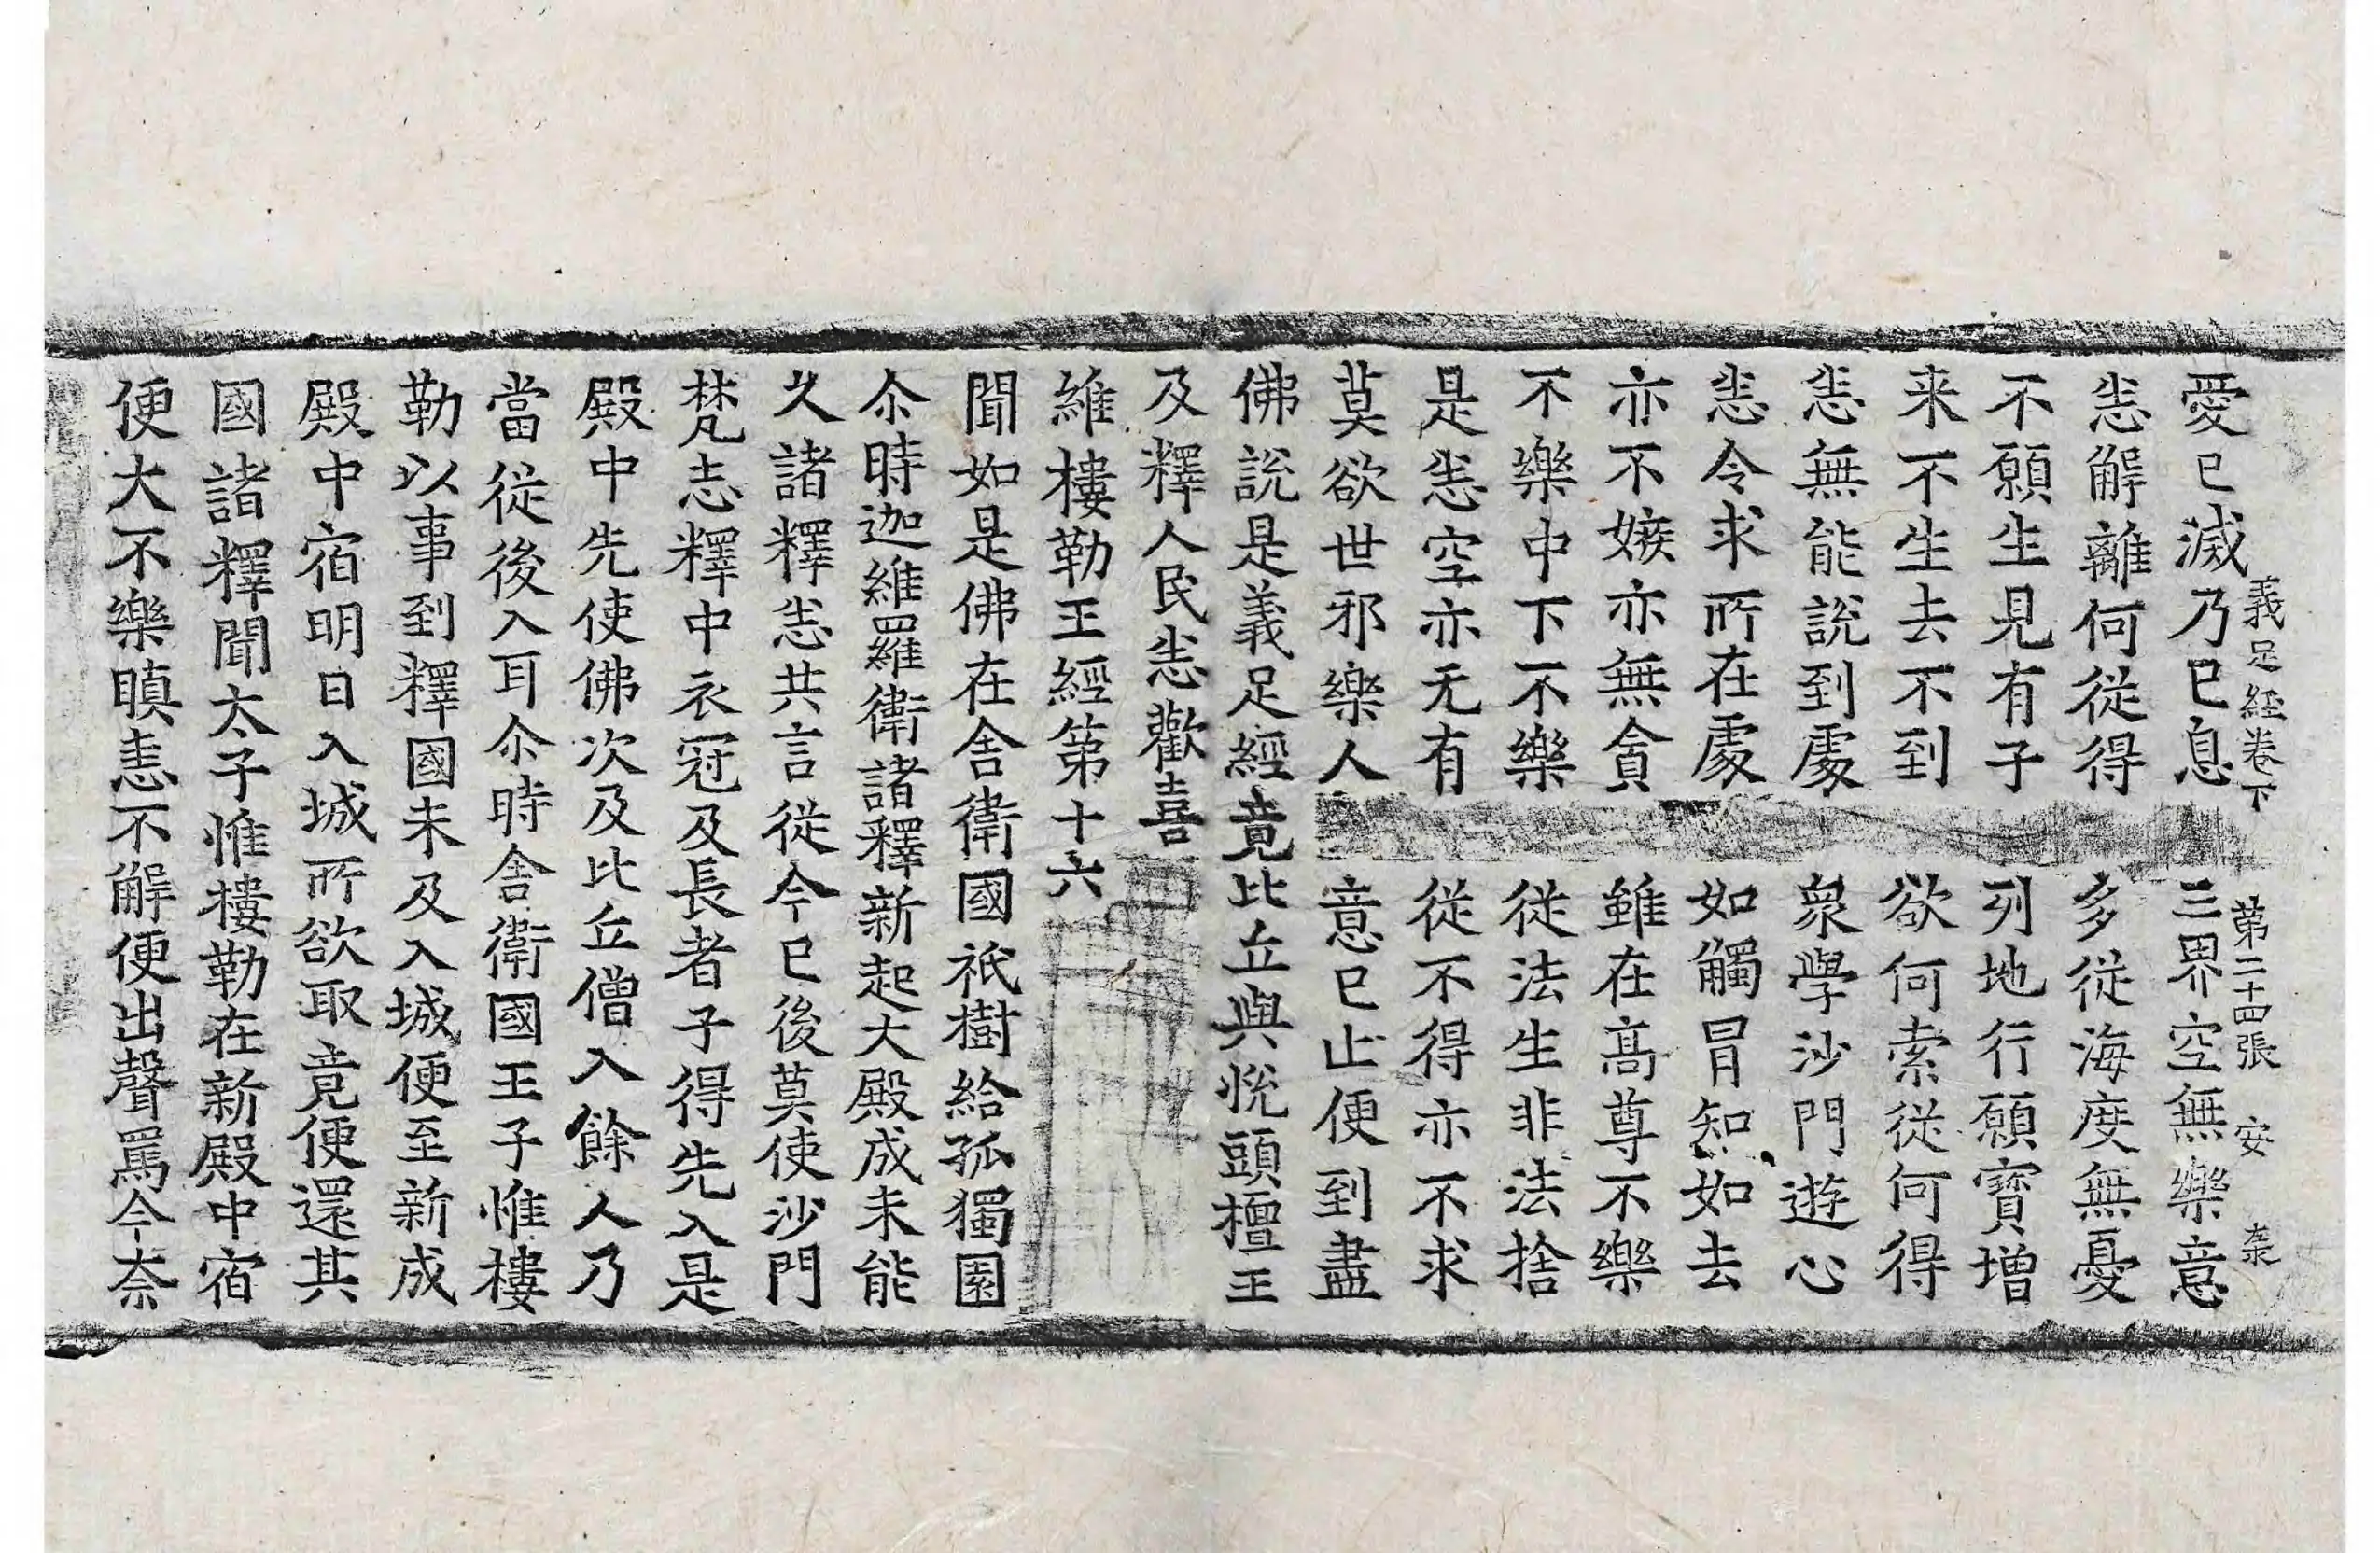 義足經卷下 第二十四張 安
愛已滅乃已息 三界空無樂意
恚解離何從得 多從海度無憂
不願生見有子 列地行願寶增
来不生去不到 欲何索從何得
恚無能說到處 衆學沙門遊心
恚令求所在處 如觸冒知如去
亦不嫉亦無貪 雖在高尊不樂
不樂中下不樂 從法生非法捨
是恚空亦无有 從不得亦不求
莫欲世邪樂人 意已止便到盡
佛說是義足經竟比丘與悅頭檀王
及釋人民恚歡喜
維樓勒王經第十六
聞如是佛在舍衛國祇樹給孤獨園
尒時迦維羅衛諸釋新起大殿成未能
久諸釋恚共言從今已後莫使沙門
梵志釋中衣冠及長者子得先入是
殿中先使佛次及比丘僧入餘人乃
當從後入耳尒時舍衛國王子惟樓
勒以事到釋國未及入城便至新成
殿中宿明日入城所欲取竟便還其
國諸釋聞太子惟樓勒在新殿中宿
便大不樂瞋恚不解便出聲罵今奈